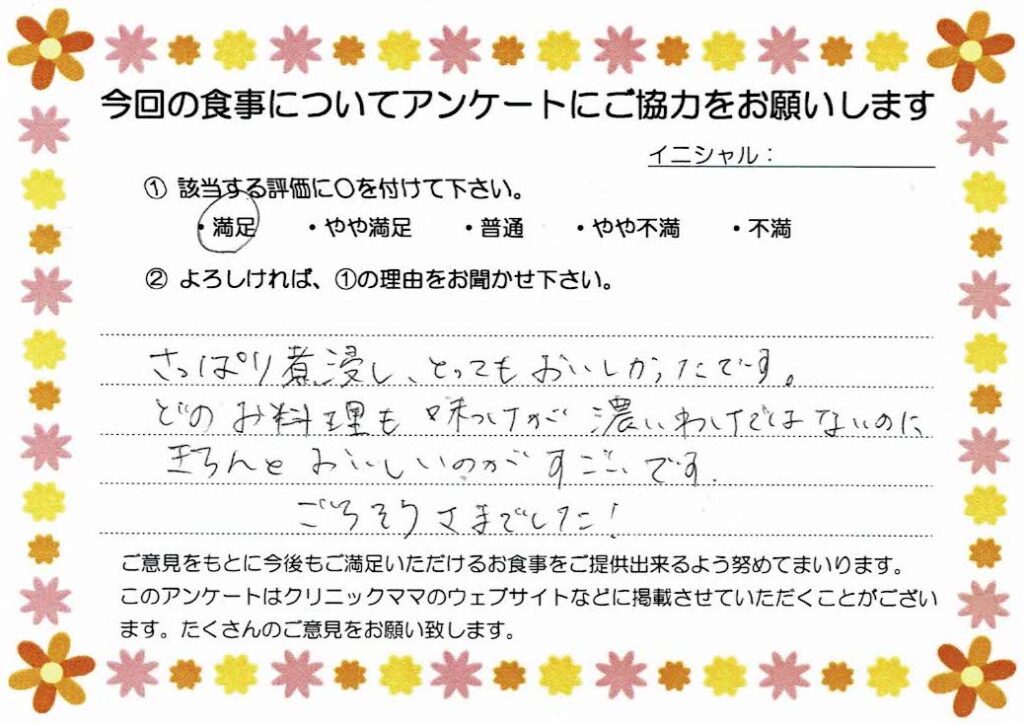 今回の食事についてアンケートにご協力をお願いします
イニシャル：
① 該当する評価に〇を付けて下さい。
・満足 ・やや満足 ・普通 ・やや不満 ・不満
② よろしければ、①の理由をお聞かせ下さい。
さっぱり煮浸し、とってもおいしかったです。
どのお料理も味つけが濃いわけではないのに
きちんとおいしいのがすごいです.
ごちそうさまでした!
ご意見をもとに今後もご満足いただけるお食事をご提供出来るよう努めてまいります。
このアンケートはクリニックママのウェブサイトなどに掲載させていただくことがござい
ます。たくさんのご意見をお願い致します。